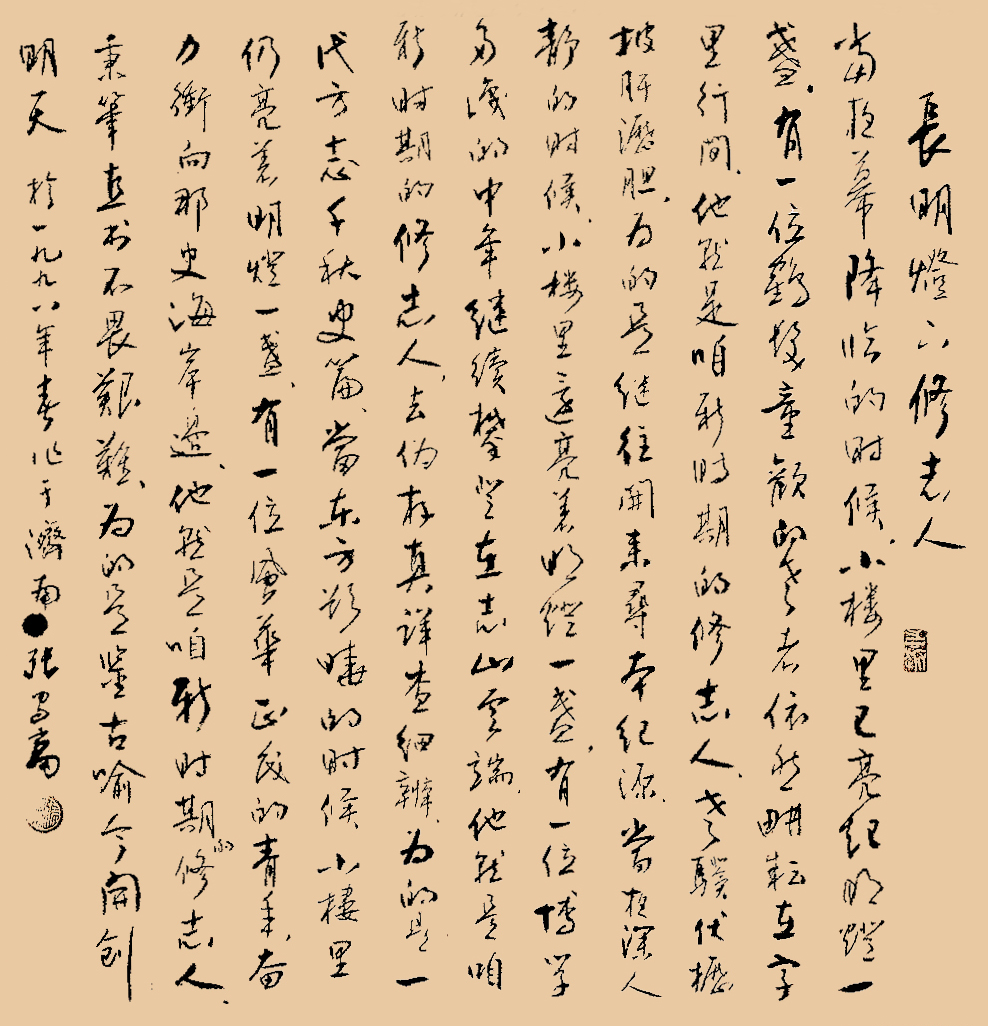 長明燈下修志人
當夜幕降临的时候,小楼里已亮起明燈一
盏,有一位鹤髮童颜的老者依然耕耘在字
里行間,他就是咱新時期的修志人,老驥伏櫪
披肝瀝胆,为的是继往開来尋本纪源,當夜深人
静的时候,小楼里还亮着明燈一盏,有一位博学
多识的中年继续攀登在志山云端,他就是咱
新时期的修志人,去伪存真詳查细辨,为的是一
代方志千秋史篇,當东方欲曉的时候小楼里
仍亮着明燈一盏,有一位風華正茂的青年,奋
力衝向那史海岸边,他就是咱新时期的修志人,
秉筆直书不畏艱難,为的是鉴古喻今開创
明天 於一九九八年春作于濟南●張